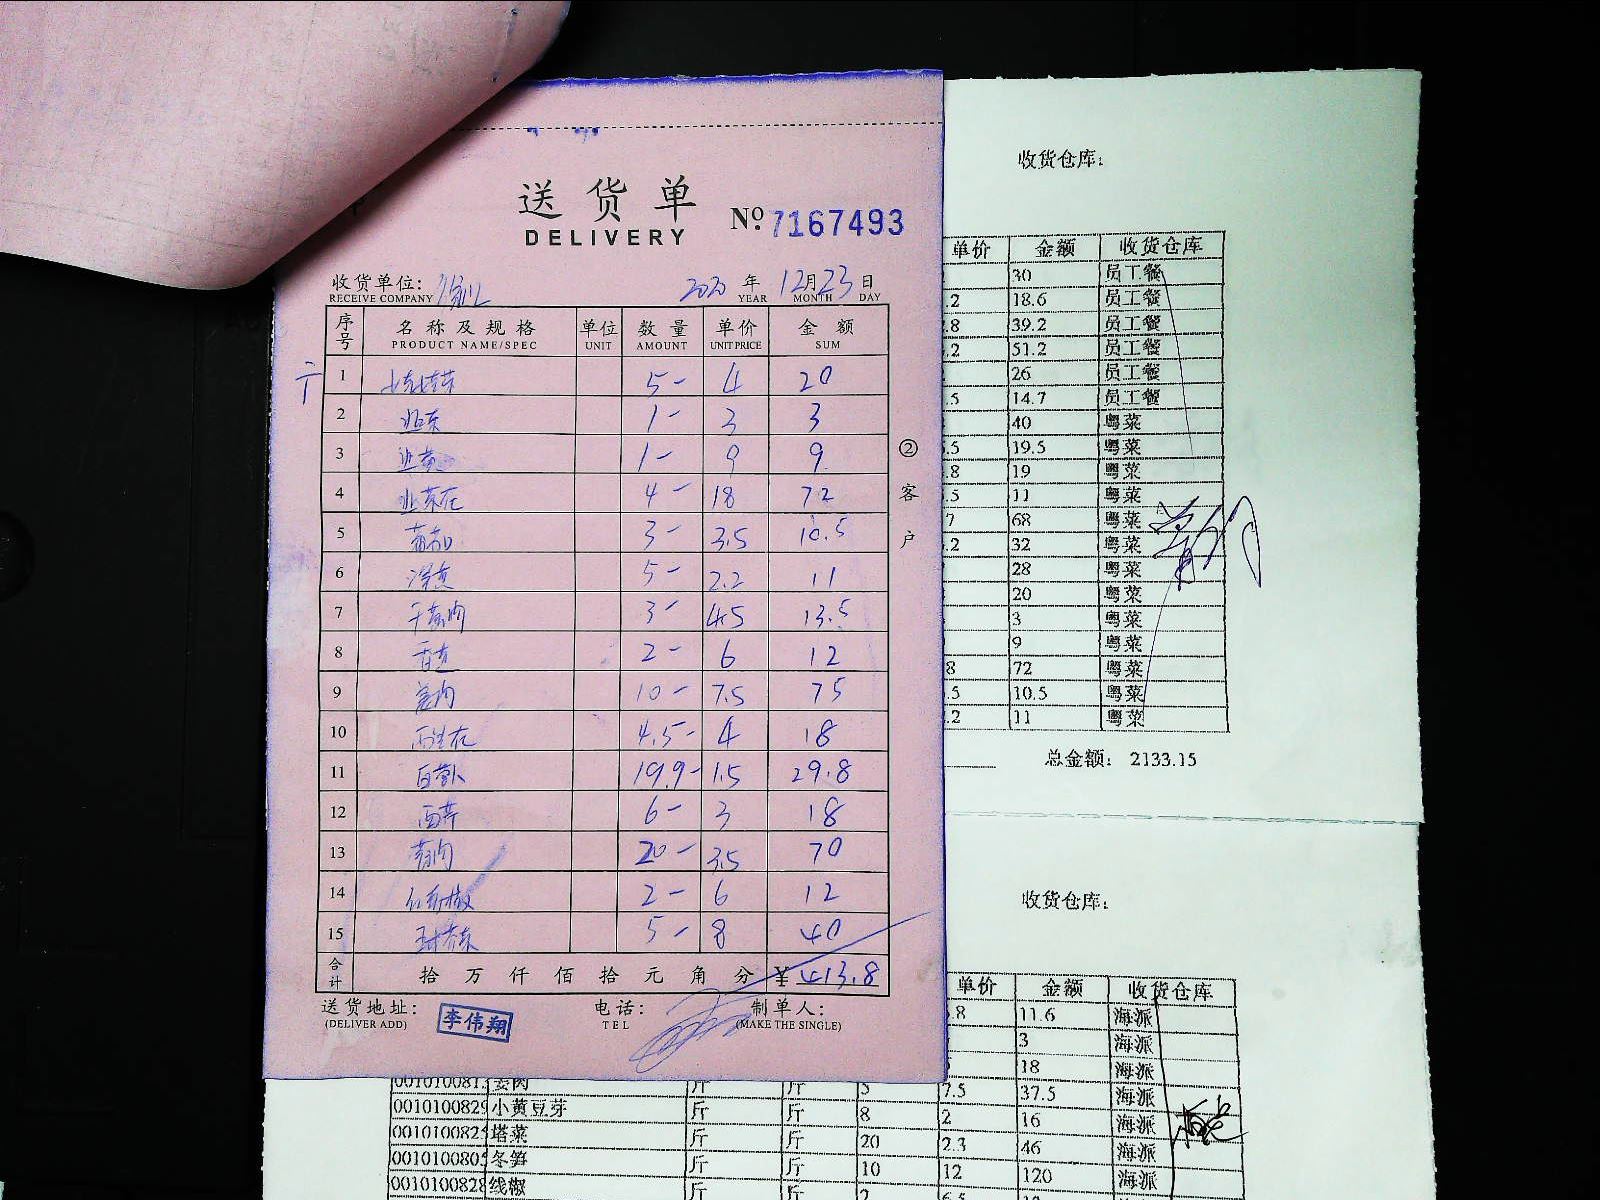 送货单
DELIVERY
No. 7167493
收货单位:
RECEIVE COMPANY
2020 年 12月23日
YEAR MONTH DAY
序号 名称及规格 单位 数量 单价 金额
PRODUCT NAME/SPEC UNIT AMOUNT UNIT PRICE SUM
1 5- 4 20
2 1- 3 3
3 1- 9 9
4 韭菜花 4- 18 72
5 3- 3.5 10.5
6 5- 2.2 11
7 3- 4.5 13.5
8 2- 6 12
9 姜肉 10- 7.5 75
10 西兰花 4.5- 4 18
11 白萝卜 19.9- 1.5 29.8
12 西芹 6- 3 18
13 20- 3.5 70
14 2- 6 12
15 5- 8 40
合计 拾 万 仟 佰 拾 元 角 分 ¥ 413.8
送货地址: 电话: 制单人:
(DELIVER ADD) TEL (MAKE THE SINGLE)
李伟翔
②客户
收货仓库:
单价 金额 收货仓库
30 员工餐
.2 18.6 员工餐
.8 39.2 员工餐
.2 51.2 员工餐
26 员工餐
.5 14.7 员工餐
40 粤菜
.5 19.5 粤菜
.8 19 粤菜
.5 11 粤菜
7 68 粤菜
.2 32 粤菜
28 粤菜
20 粤菜
3 粤菜
9 粤菜
8 72 粤菜
.5 10.5 粤菜
.2 11 粤菜
总金额: 2133.15
收货仓库:
单价 金额 收货仓库
.8 11.6 海派
3 海派
18 海派
姜肉 斤 斤 5 7.5 37.5 海派
0010100829 小黄豆芽 斤 斤 8 2 16 海派
001010082 塔菜 斤 斤 20 2.3 46 海派
001010080 冬笋 斤 斤 10 12 120 海派
0010100828 线椒 斤 斤 2 6.5 海派